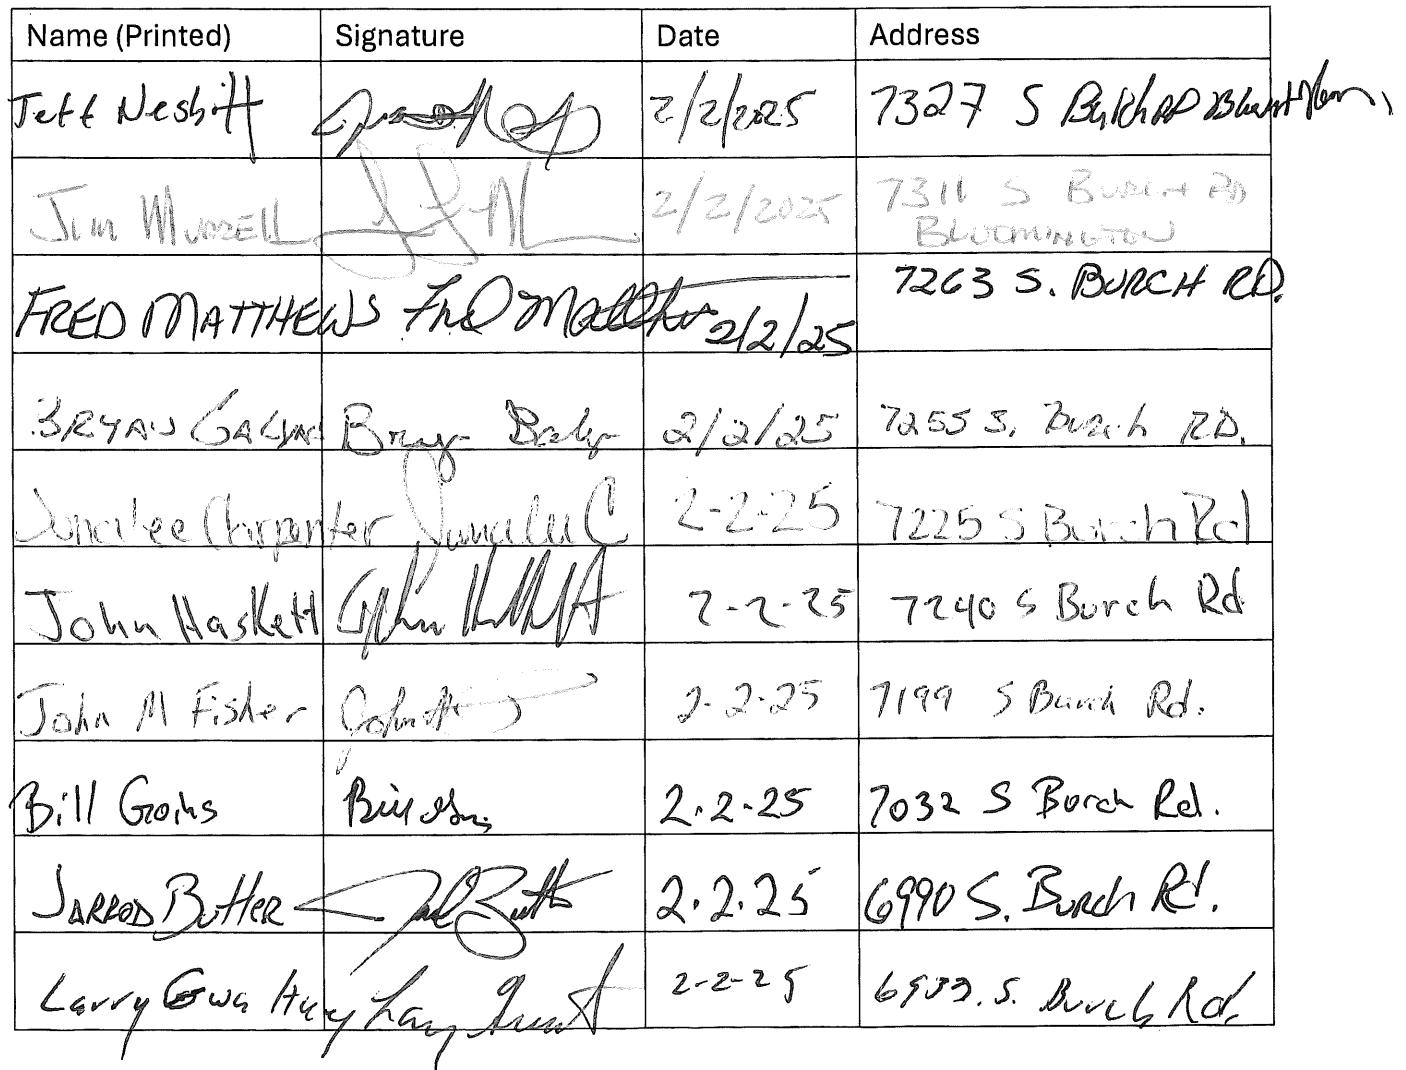 Name (Printed) Signature Date Address
Jeff Nesbitt 2/2/2025 7327 S Burch RD
Jim Murrell 2/2/2025 7311 S Burch RD
Bloomington
FRED MATTHEWS Fred Matthews 2/2/25 7263 S. BURCH RD.
BRYAN 2/2/25 7255 S. Burch RD.
Carpenter 2-2-25 7225 S Burch Rd
John Haskett 2-2-25 7240 S Burch Rd
John M Fisher 2-2-25 7199 S Burch Rd.
Bill Goins Bill Goins 2-2-25 7032 S Burch Rd.
JARROD Butler 2.2.25 6990 S. Burch Rd.
Larry Larry 2-2-25 S. Burch Rd.